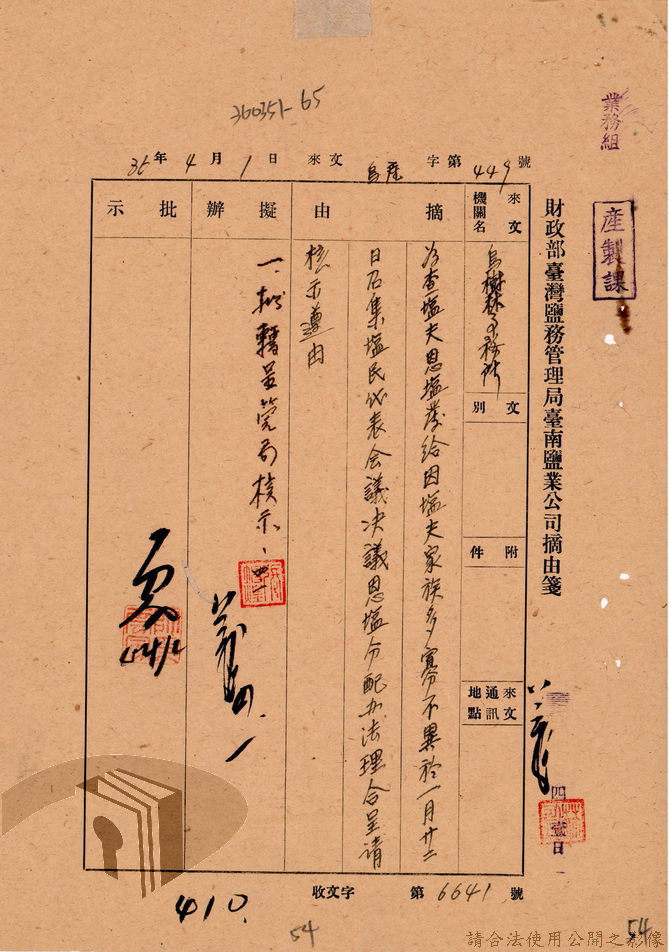 360351-65
業務組
產製課
財政部臺灣鹽務管理局臺南鹽業公司摘由箋
36年4月1日 來文 烏產 字第449號
來文機關名
烏樹林事務所
文別
附件
來文通訊地點
摘由
為查塩夫恩塩發給因塩夫家族多寡不異於一月廿二
日召集塩民代表会議决議恩塩分配办法理合呈請
核示遵由
擬辦
一、擬轉呈管局核示、
批示
四 壹日
收文 字第6641號
410.
54
54
請合法使用公開之影像